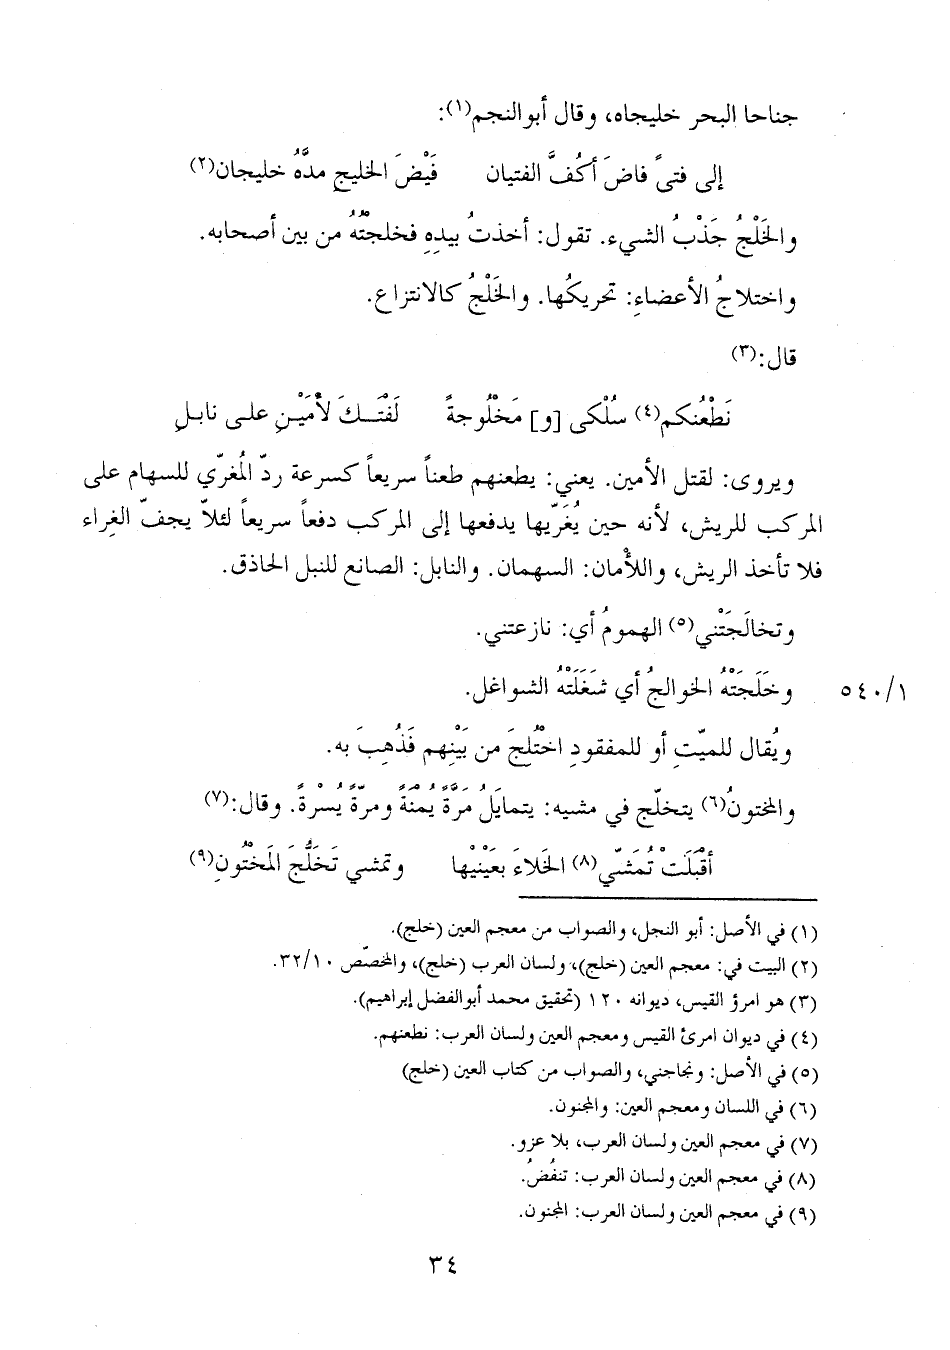 جناحا البحر خليجاه، وقال أبو النجم(١):
إلى فتىً فاضَ أكُفَّ الفتيان فَيْضَ الخليجِ مدَّهُ خليجان(٢)
والخَلْجُ جَذْبُ الشيء. تقول: أخذتُ بيدِهِ فخلجتْهُ من بين أصحابه.
واختلاجُ الأعضاءِ: تحريكُها. والخَلْجُ كالانتزاع.
قال:(٣)
نَطْعُنكم(٤) سُلْكى [و] مَخْلُوجةً لَفْتَكَ لأْمَيْنِ على نابلِ
ويروى: لقتل الأمين. يعني: يطعنهم طعناً سريعاً كسرعة ردّ المُغرّي للسهام على
المركب للريش، لأنه حين يُغَرّيها يدفعها إلى المركب دفعاً سريعاً لئلاّ يجفّ الغِراء
فلا تأخذ الريش، واللأْمان: السهمان. والنابل: الصانع للنبل الحاذق.
وتخالَجَتْني(٥) الهمومُ أي: نازعتني.
وخَلَجَتْهُ الخوالجُ أي شَغَلَتْهُ الشواغل. ٥٤٠/١
ويُقال للميّتِ أو للمفقودِ اخْتُلجَ من بَيْنِهم فَذُهِبَ به.
والمختونُ(٦) يتخلّج في مشيه: يتمايَلُ مرّةً يُمْنَةً ومرّةً يُسْرةً. وقال:(٧)
أقْبَلَتْ تُمَشّي(٨) الخَلاءَ بعَيْنيْها وتمشي تَخَلُّجَ المَخْتُونِ(٩)
(١) في الأصل: أبو النجل، والصواب من معجم العين (خلج).
(٢) البيت في: معجم العين (خلج)، ولسان العرب (خلج)، والمخصّص ٣٢/١٠.
(٣) هو امرؤ القيس، ديوانه ١٢٠ (تحقيق محمد أبوالفضل إبراهيم).
(٤) في ديوان امرئ القيس ومعجم العين ولسان العرب: نطعنهم.
(٥) في الأصل: ونجاجني، والصواب من كتاب العين (خلج)
(٦) في اللسان ومعجم العين: والمجنون.
(٧) في معجم العين ولسان العرب، بلا عزو.
(٨) في معجم العين ولسان العرب: تنفُضُ.
(٩) في معجم العين ولسان العرب: المجنون.
٣٤